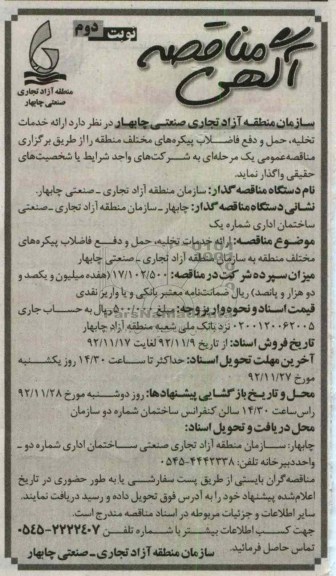 آگهی مناقصه
نوبت دوم
منطقه آزاد تجاری
صنعتی چابهار
سازمان منطقه آزاد تجاری صنعتی چابهار در نظر دارد ارائه خدمات
تخلیه، حمل و دفع فاضلاب پیکره‌های مختلف منطقه را از طریق برگزاری
مناقصه عمومی یک مرحله‌ای به شرکت‌های واجد شرایط یا شخصیت‌های
حقیقی واگذار نماید.
نام دستگاه مناقصه گذار: سازمان منطقه آزاد تجاری ـ صنعتی چابهار.
نشانی دستگاه مناقصه گذار: چابهار ـ سازمان منطقه آزاد تجاری ـ صنعتی
ساختمان اداری شماره یک
موضوع مناقصه: ارائه خدمات تخلیه، حمل و دفع فاضلاب پیکره‌های
مختلف منطقه به سازمان منطقه آزاد تجاری ـ صنعتی چابهار
میزان سپرده شرکت در مناقصه: ۱۷/۱۰۲/۵۰۰ (هفده میلیون و یکصد و
دو هزار و پانصد) ریال ضمانت‌نامه معتبر بانکی و یا واریز نقدی
قیمت اسناد و نحوه واریز وجه: مبلغ ۵۰۰/۰۰۰ ریال به حساب جاری
۰۲۰۰۱۲۰۰۶۲۰۰۵ نزد بانک ملی شعبه منطقه آزاد چابهار
تاریخ فروش اسناد: از تاریخ ۹۲/۱۱/۹ لغایت ۹۲/۱۱/۱۷
آخرین مهلت تحویل اسناد: حداکثر تا ساعت ۱۴/۳۰ روز یکشنبه
مورخ ۹۲/۱۱/۲۷
محل و تاریخ بازگشایی پیشنهادها: روز دوشنبه مورخ ۹۲/۱۱/۲۸
راس ساعت ۱۴/۳۰ سالن کنفرانس ساختمان شماره دو سازمان
محل دریافت و تحویل اسناد:
چابهار: سازمان منطقه آزاد تجاری صنعتی ساختمان اداری شماره دو ـ
واحد دبیرخانه تلفن: ۴۴۴۲۳۳۸-۰۵۴۵
مناقصه‌گران بایستی از طریق پست سفارشی یا به طور حضوری در تاریخ
اعلام‌شده پیشنهاد خود را به آدرس فوق تحویل داده و رسید دریافت نمایند.
سایر اطلاعات و جزئیات مربوطه در اسناد مناقصه مندرج است.
جهت کسب اطلاعات بیشتر با شماره تلفن ۲۲۲۲۴۰۷-۰۵۴۵
تماس حاصل فرمائید.
سازمان منطقه آزاد تجاری ـ صنعتی چابهار